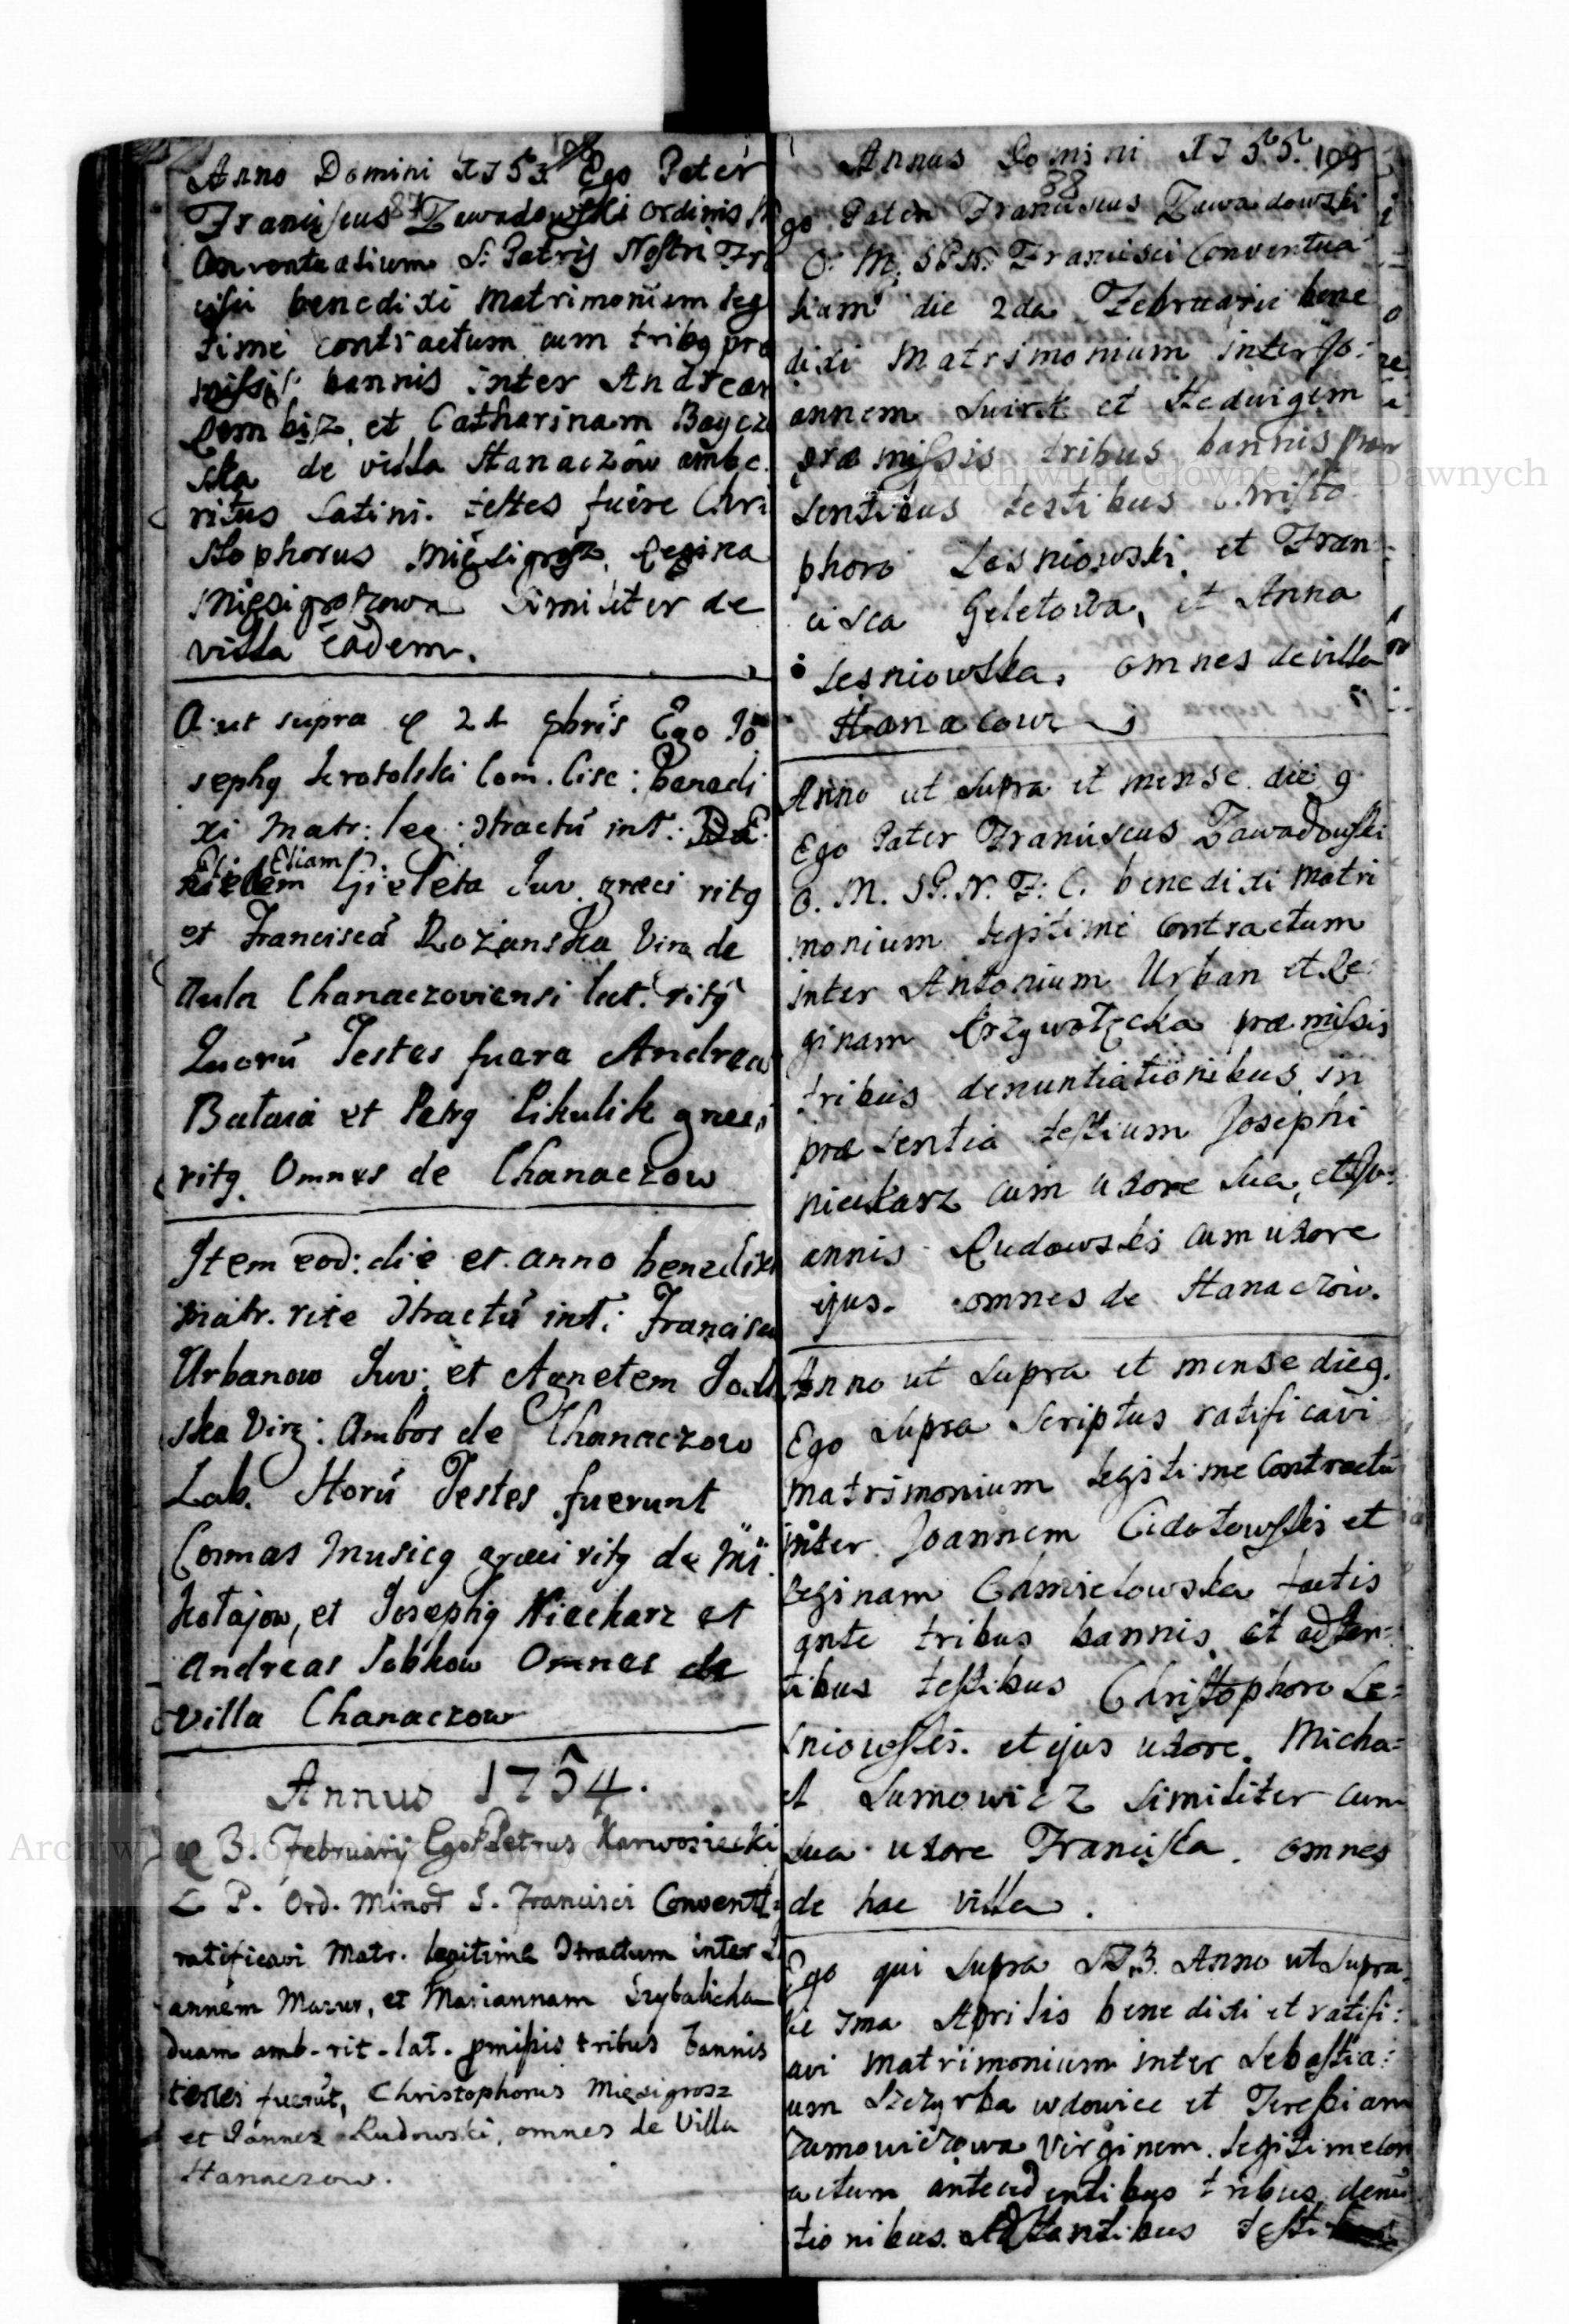 Anno Domini 1753. Ego Pater
Franciscus Zawadowski ordinis
Conventualium S: Patris Nostri Fr
cisci benedixi Matrimonium leg
time contractum cum tribq prae
missis bannis inter Andream
et Catharinam
ska de villa Hanaczow ambo
ritus Latini. testes fuere Chri
stophorus Mięsigrosz, Regina
Mięsigroszowa Similiter de
villa eadem.
A: ut supra 21 9bris Ego Jo
sephq Com. Cisc: Benedi
xi Matr: leg: Ɔtractũ int:
Eliam
Gieleta Juv. græci ritq
et Franciscã Rozanska Virg de
Aula Chanaczoviensi lat. ritq
Quorũ Testes fuere Andreas
Bataia et Petrq Pikulik græci
ritq. Omnes de Chanaczow
Item eod: die et anno benedixi
Matr. rite Ɔtractũ int: Francisc
Urbanow Juv: et Agnetem
ska Virg: Ambos de Chanaczow
Lab. Horũ Testes fuerunt
Cosmas Musicq græci ritq de Mi
kołajow, et Josephq Nieckarz et
Andreas Sobkow Omnes de
Villa Chanaczow
Annus 1754.
3. Februarij Ego Petrus Karwosiecki
P. Ord. Minor S. Francisci Convent
ratificavi Matr. legitime Ɔtractum inter
annem Mazur, et Mariannam Szybalicha
duam amb. rit. lat. pmissis tribus bannis
testes fuerũt, Christophorus Mięsigrosz
et Joannes Rudowski, omnes de Villa
Hanaczow.
Annus Domini 1755. 109
88
go Pater Franciscus Zawadowski
O. M. S P. N. Francisci Conventua
lium die 2da Februarii bene
dixi Matrimonium inter Jo:
annem Swirk et Hedwigem
præmissis tribus bannis præ
sentibus testibus Christo
phoro Lesniowski, et Fran
cisca Geletowa, et Anna
Lesniowska, omnes de villa
Hanacow
Anno ut supra et mense die 9
Ego Pater Franciscus Zawadowski
O. M. S P. N. F: C. benedixi Matri
monium legitime contractum
inter Antonium Urban et Re:
ginam Krzywołzcka præmissis
tribus denuntiationibus in
præsentia testium Josephi
Nieckarz cum uxore sua, et Jo:
annis Rudowski cum uxore
ejus. omnes de Hanaczow.
Anno ut supra et mense die 9.
Ego supra scriptus ratificavi
matrimonium legitime contractũ
inter Joannem Cidołowski et
Reginam Chmielowska factis
ante tribus bannis, et adstan:
tibus testibus Christophoro Le:
sniowski. et ejus uxore. Micha:
el Sumowicz similiter cum
sua uxore Franciska. omnes
de hac villa.
Ego qui supra Anno ut supra
die 1ma Aprilis benedixi et ratifi:
cavi matrimonium inter Sebastia:
num Szczyrba wdowiec et Teressiam
Sumowiczowa Virginem. legitime con
actum antecedentibus tribus denũ
tionibus. Adstantibus
Archiwum Główne Akt Dawnych
Archiwum Główne Akt Dawnych